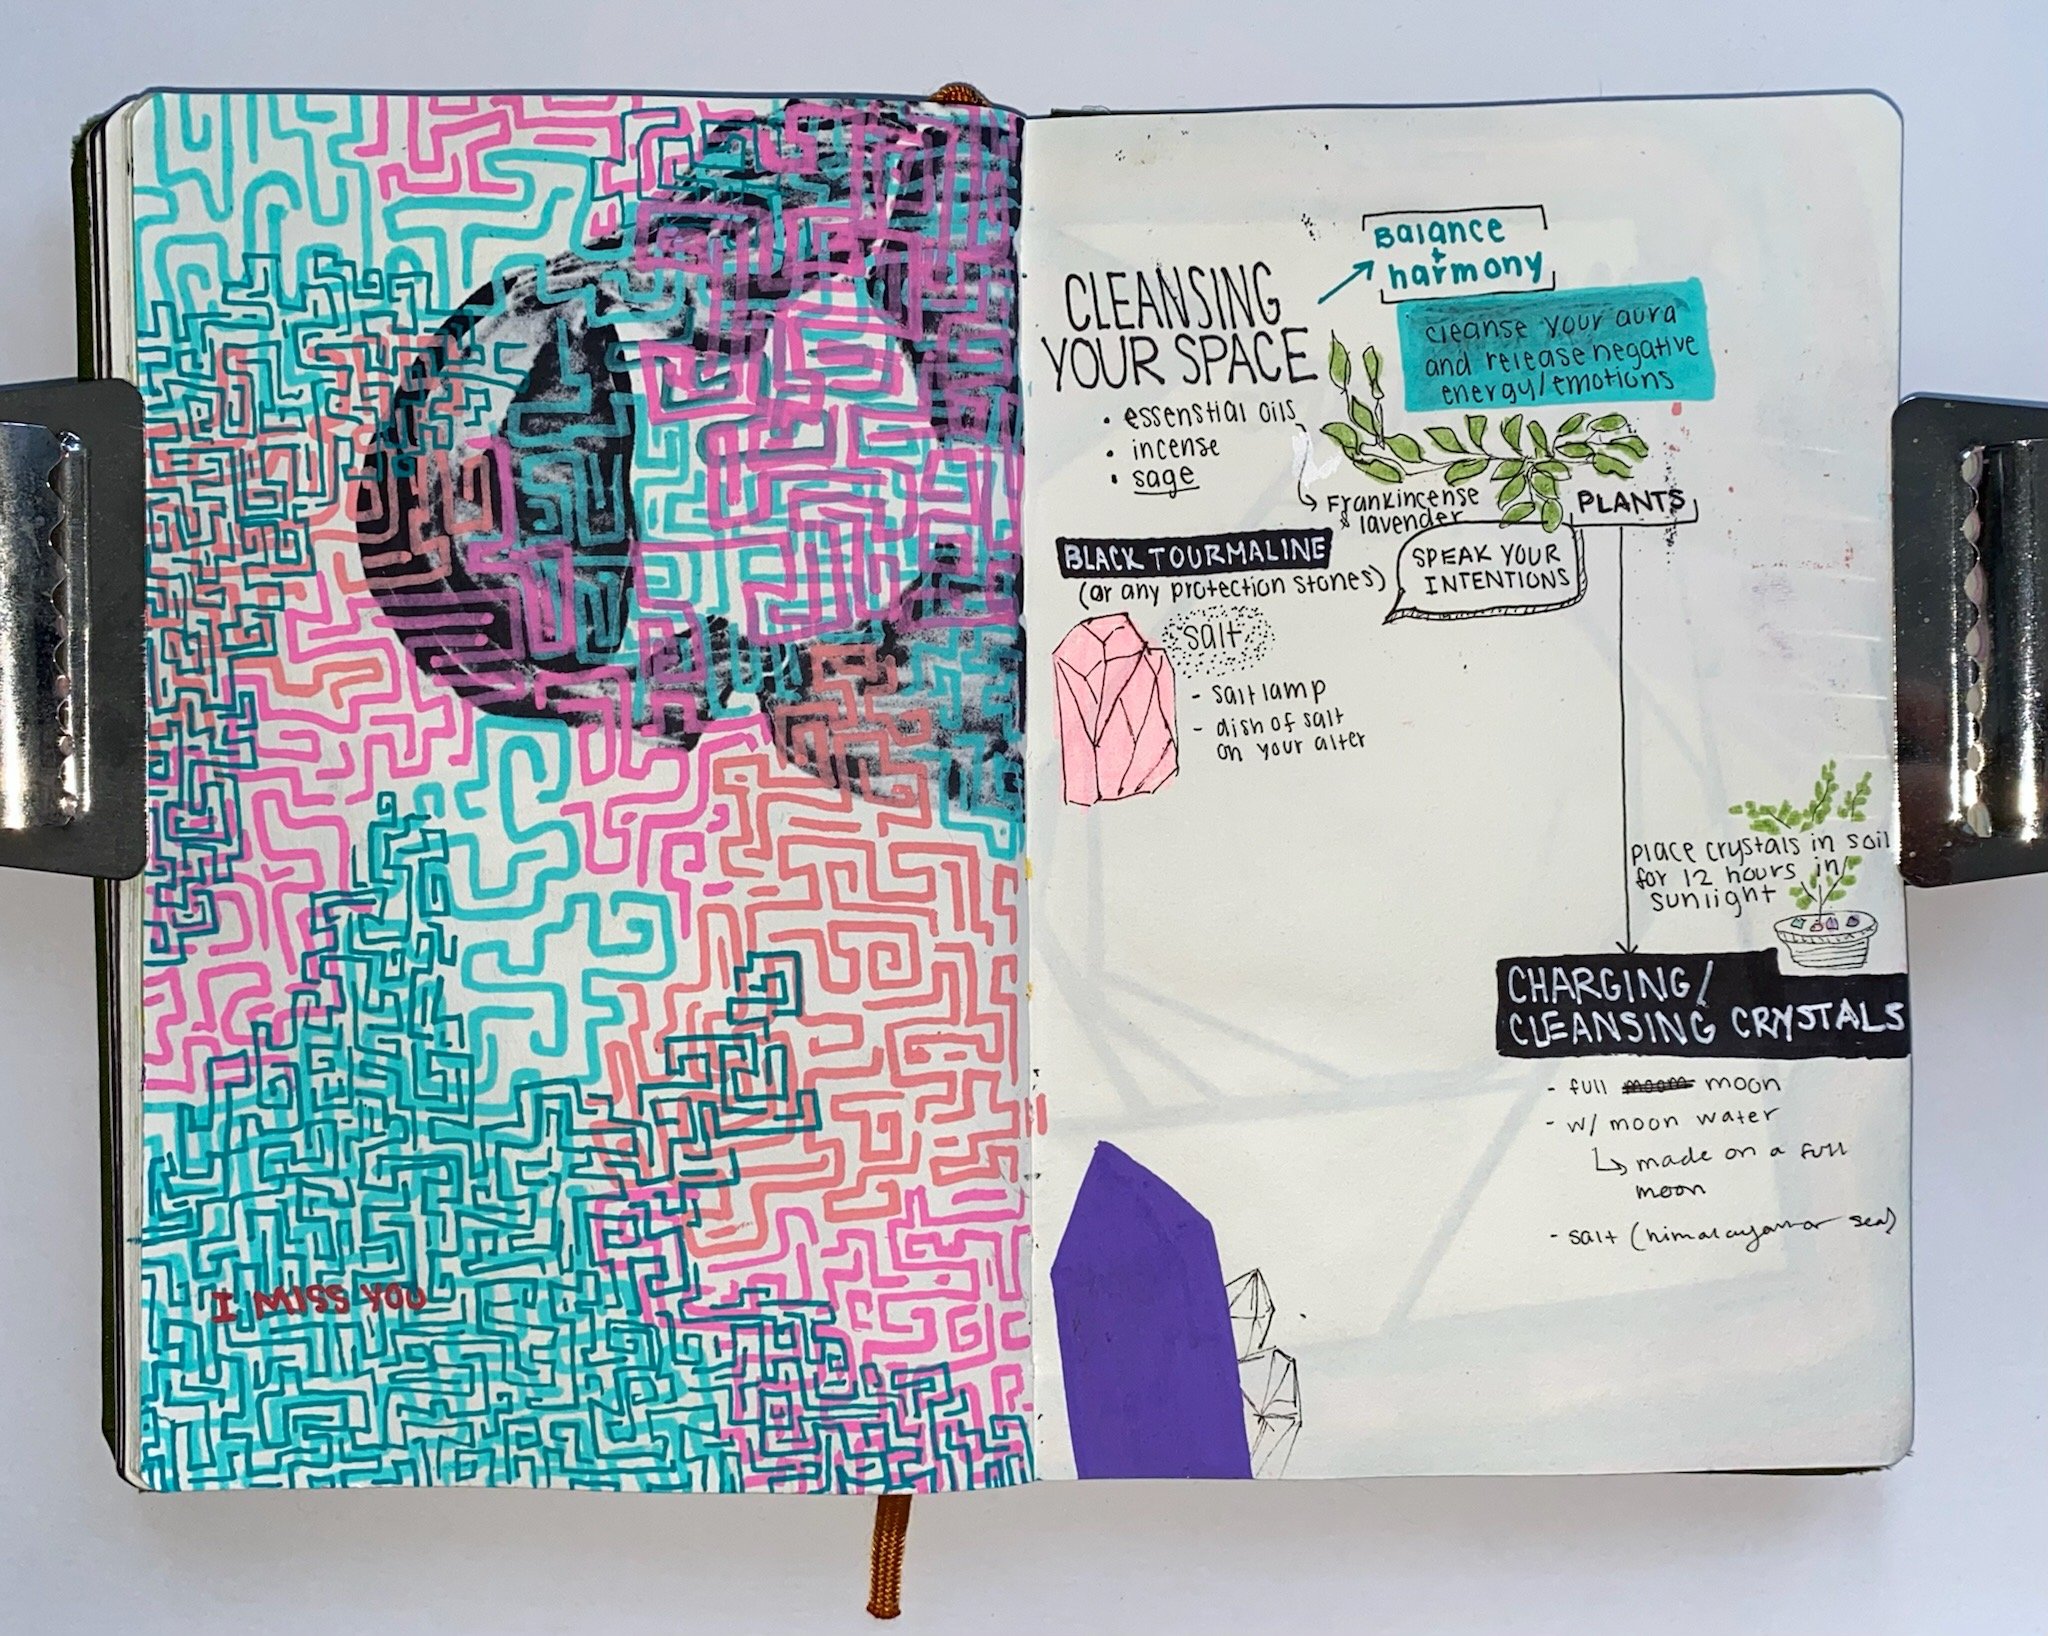 I MISS YOU
CLEANSING
YOUR SPACE
Balance
+
harmony
cleanse your aura
and release negative
energy/emotions
• essenstial oils
• incense
• sage
Frankincense
& lavender
PLANTS
SPEAK YOUR
INTENTIONS
BLACK TOURMALINE
(or any protection stones)
salt
- salt lamp
- dish of salt
on your alter
place crystals in soil
for 12 hours in
sunlight
CHARGING/
CLEANSING CRYSTALS
- full moom moon
- w/ moon water
made on a full
moon
- salt (himalayan or sea)